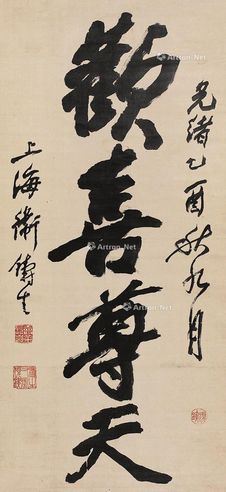 光緒乙酉秋九月
歡喜尊天
上海衛鑄生